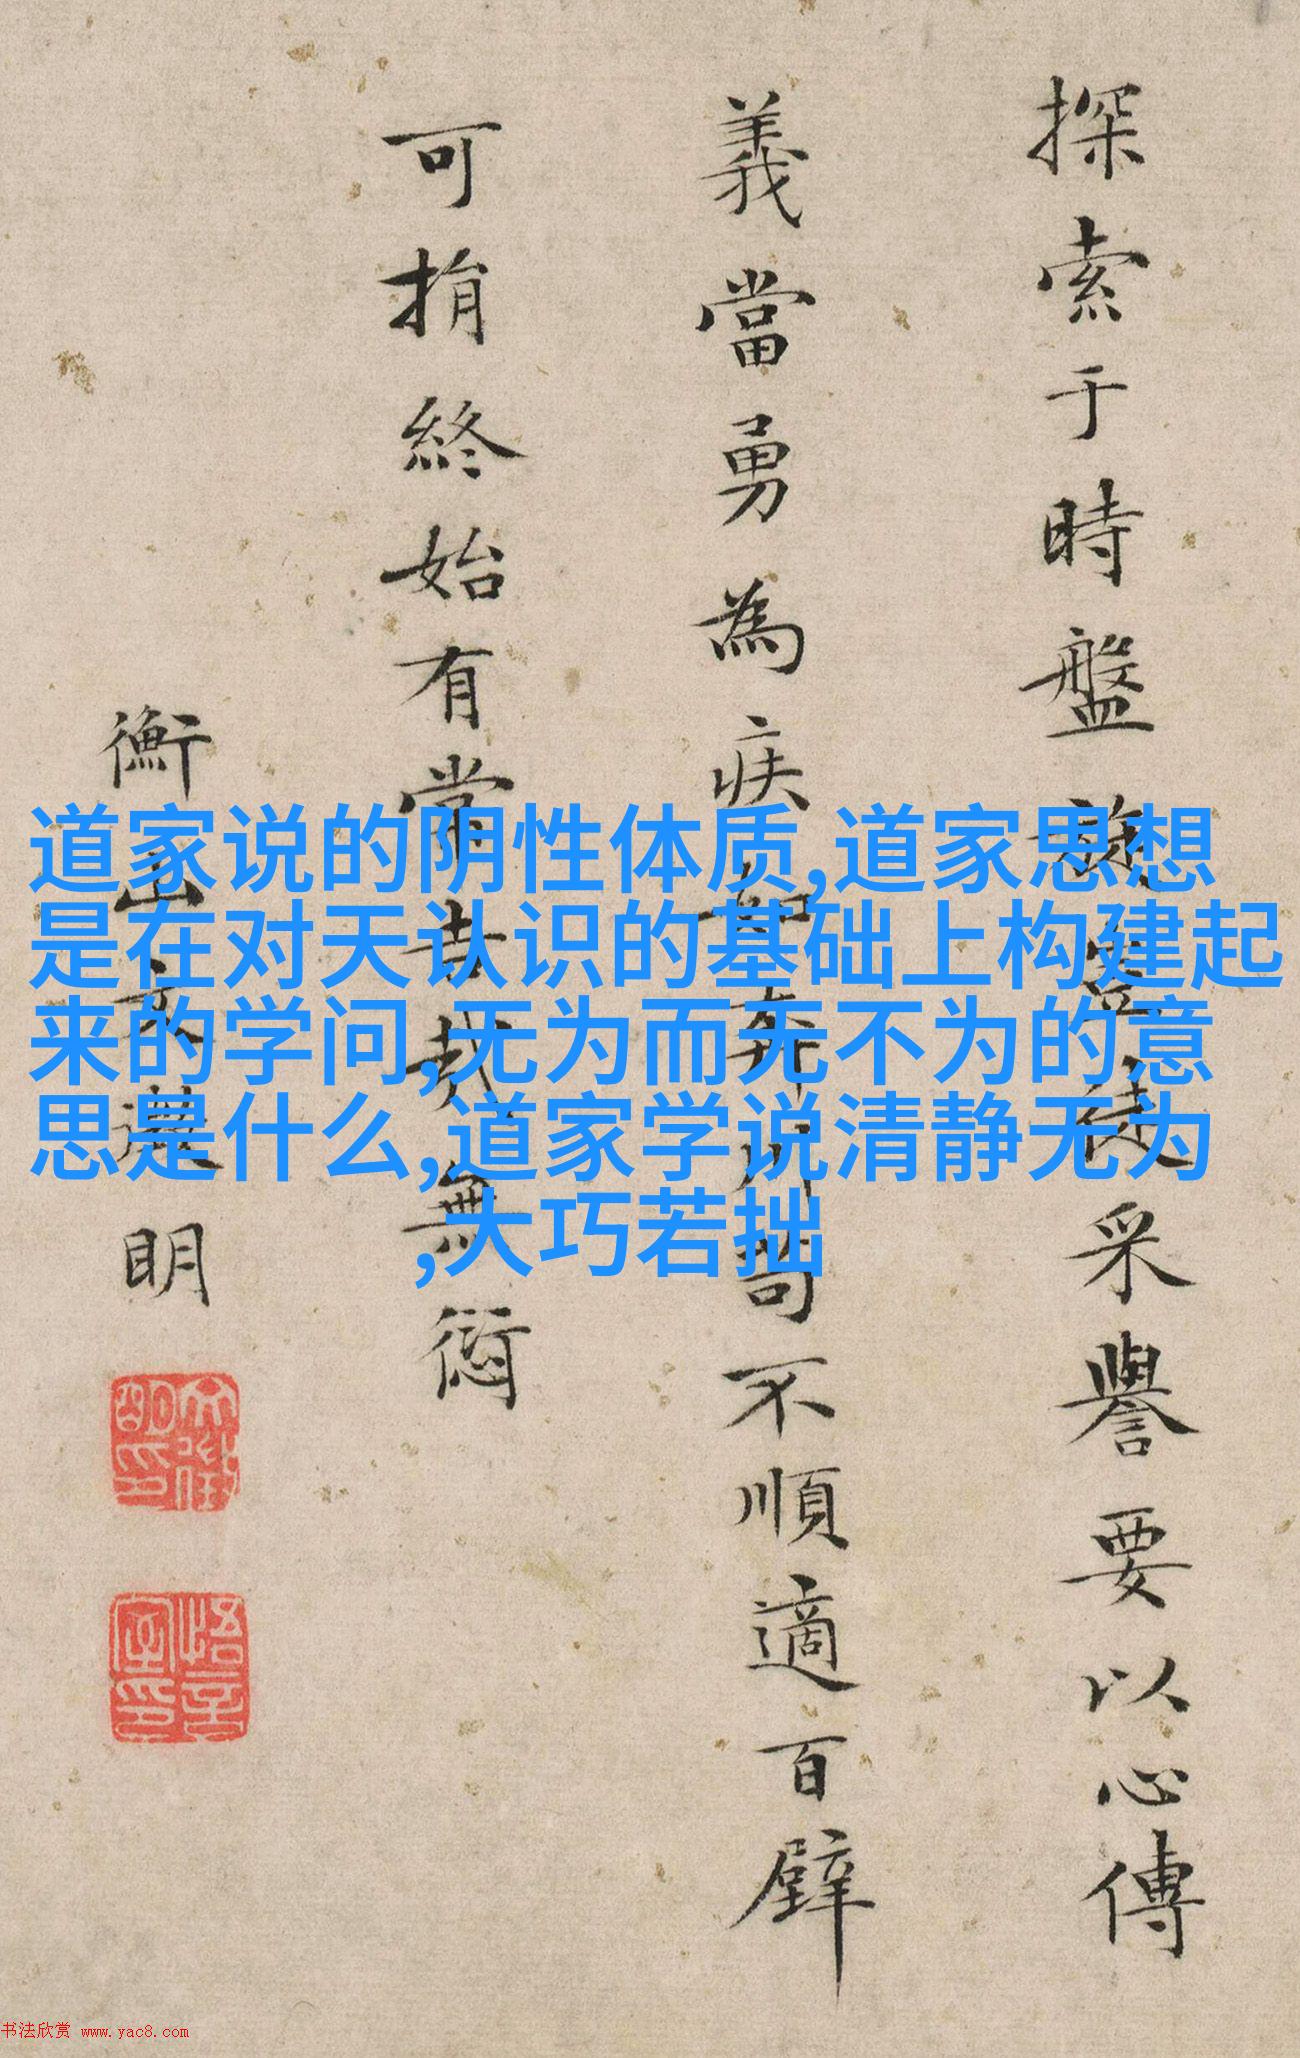 探索于時盤旋
采譽要以心傳
義當勇為疾如奔川苟不順適百
可捐終始有常吉哉無愆
衡山文徵明
道家说的阴性体质,道家思想
是在对天认识的基础上构建起
来的学问,无为而无不为的意
思是什么,道家学说清静无为
,大巧若拙
文徵明印
悟言室印
书法欣赏 www.yac8.com